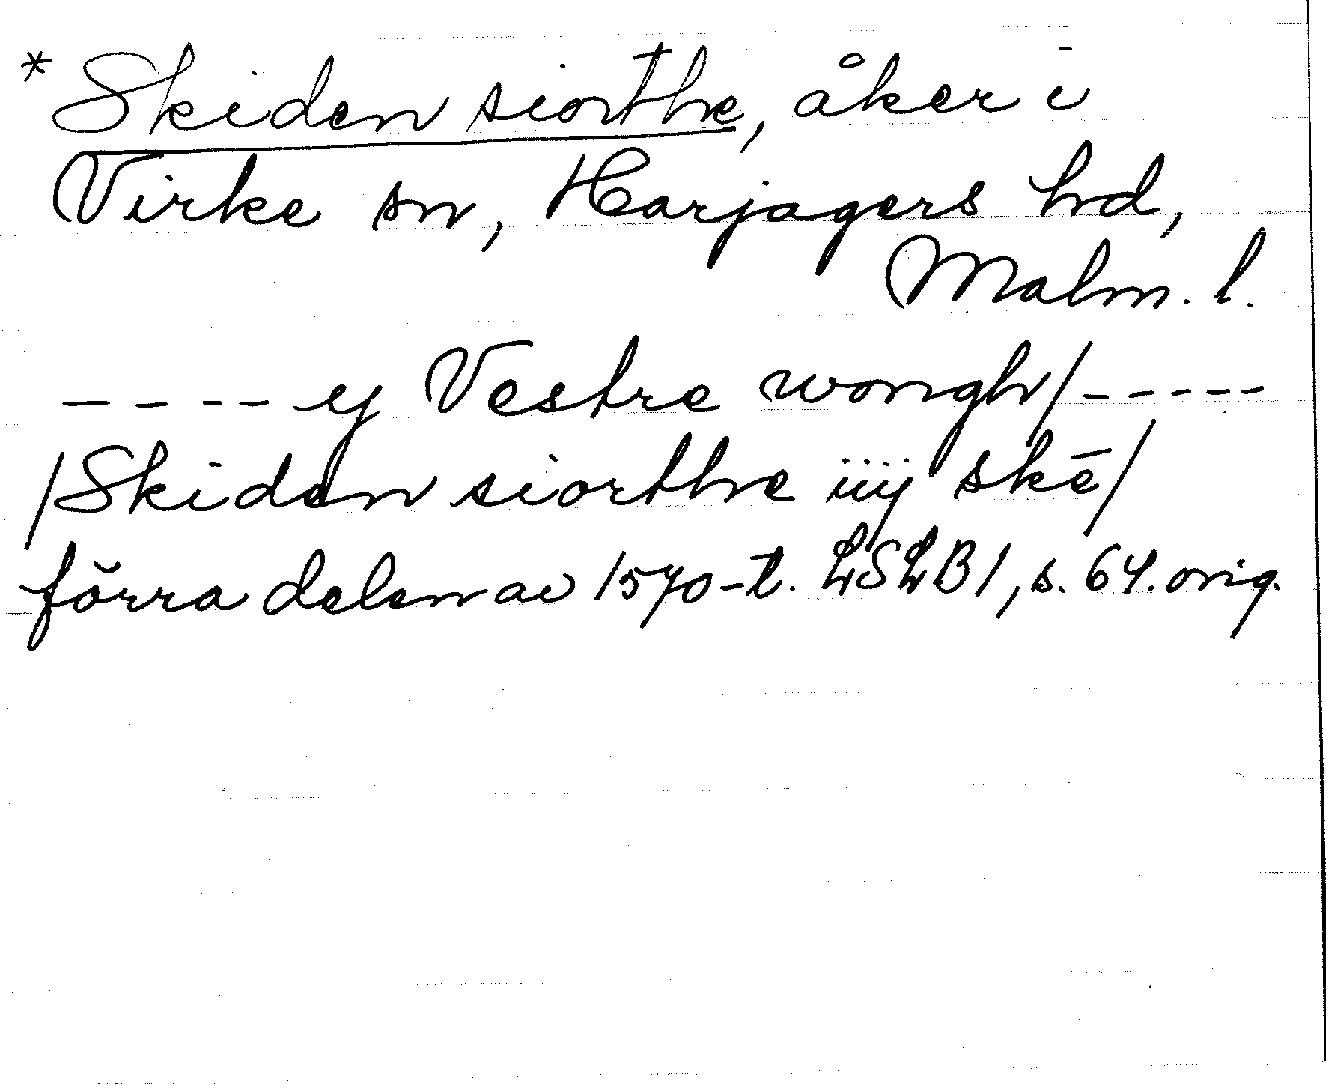 * Skiden siorthe, åker i
Virke sn, Harjagers hd,
Malm. l.
- - - - ej Vestre wongh/-----
/Skiden siorthe iiij skē/
förra delen av 1570-t. LSLB1, s. 64. orig.